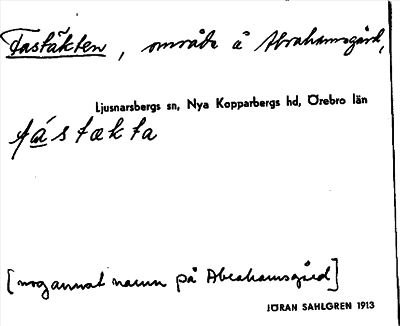 Fastäkten, område å Abrahamsgård,
Ljusnarsbergs sn, Nya Kopparbergs hd, Örebro län
fástækta
[nog annat namn på Abrahamsgård]
JÖRAN SAHLGREN 1913